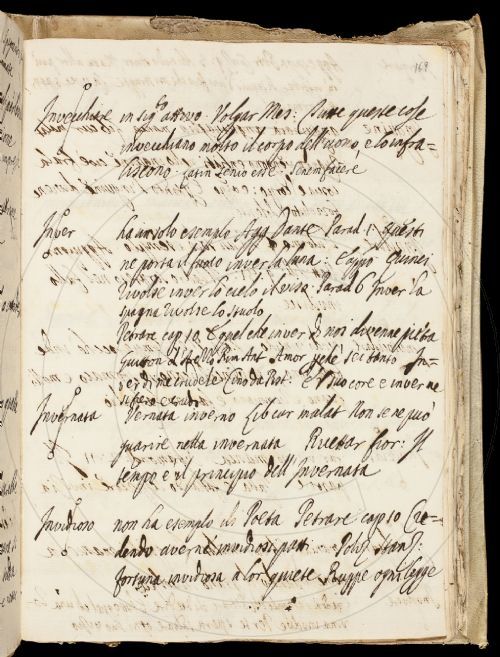 169
Invecchiare in sig. attivo. Volgar Mes: Tutte queste cose
invecchiano molto il corpo dell'uomo, e lo infra=
liscono. Latin senio esse senem facere
Inver ha un solo esempio Agg Dante Parad 1 Questi
ne porta il fuoco inver la luna: e Capo quinci
rivolse inver lo cielo il viso. Parad 6 Inver la
spagna rivolse lo stuolo
Petrarc cap 10. E quel che inver di noi divenne pietra
Guitton Rim Ant Amor
crudele: Cino da Pist: E'l suo core e inver me
Invernata Vernata inverno Lib cur malat Non se ne può
guarire nella invernata Ricettar fior: Il
tempo è il principio dell'Invernata
Invidioso non ha esempio di Poeta Petrarc cap 10 Cre=
dendo averne invidiosi patti Poliz stanz:
fortuna invidiosa a lor quiete Ruppe ogni legge